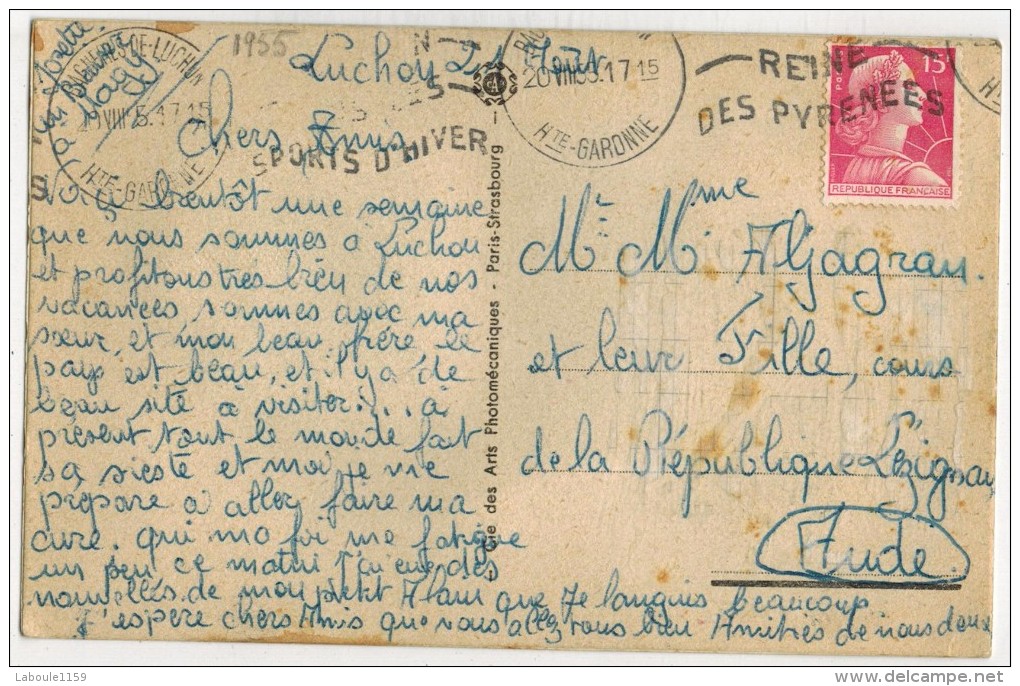 1955
BAGNÈRES-DE-LUCHON
20 VIII 55.17 15
HTE-GARONNE
SPORTS D'HIVER
20 VIII 55.17 15
HTE-GARONNE
REINE
DES PYRENEES
15F
REPUBLIQUE FRANÇAISE
Luchon 2 Août
Chers Amis
Voilà bientôt une semaine
que nous sommes à Luchon
et profitons très bien de nos
vacances sommes avec ma
sœur, et mon beau frère le
pays est beau, et il y a de
beau site à visiter... à
présent tout le monde fait
sa sieste et moi je me
prépare à aller faire ma
cure. qui ma foi me fatigue
un peu ce matin J'ai eue des
nouvelles de mon petit Alain que Je languis beaucoup.
J'espère chers Amis que vous allez tous bien Amitiés de nous deux
Cie des Arts Photomécaniques - Paris-Strasbourg
Mr Mme Aljagran.
et leur Fille, cours
de la République Lézignan
Aude
Laboule1159
delcampe.net